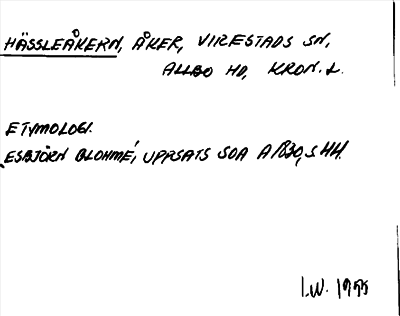 HÄSSLEÅKERN, ÅKER, VIRESTADS SN,
ALLBO HD, KRON. L.
ETYMOLOGI.
ESBJÖRN BLOHMÉ, UPPSATS SOA A 1830, S 44.
I.W. 1955